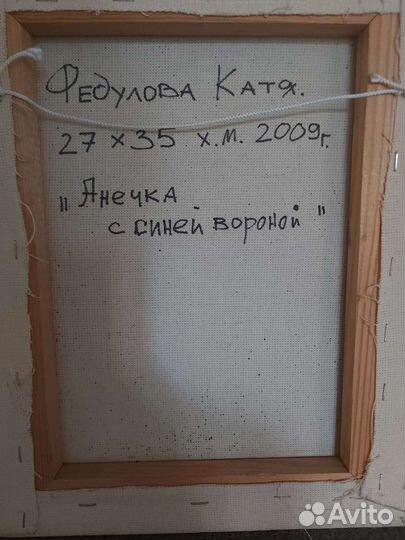 Федулова Катя.
27 x 35 х.м. 2009г.
"Анечка
с синей вороной"
Avito